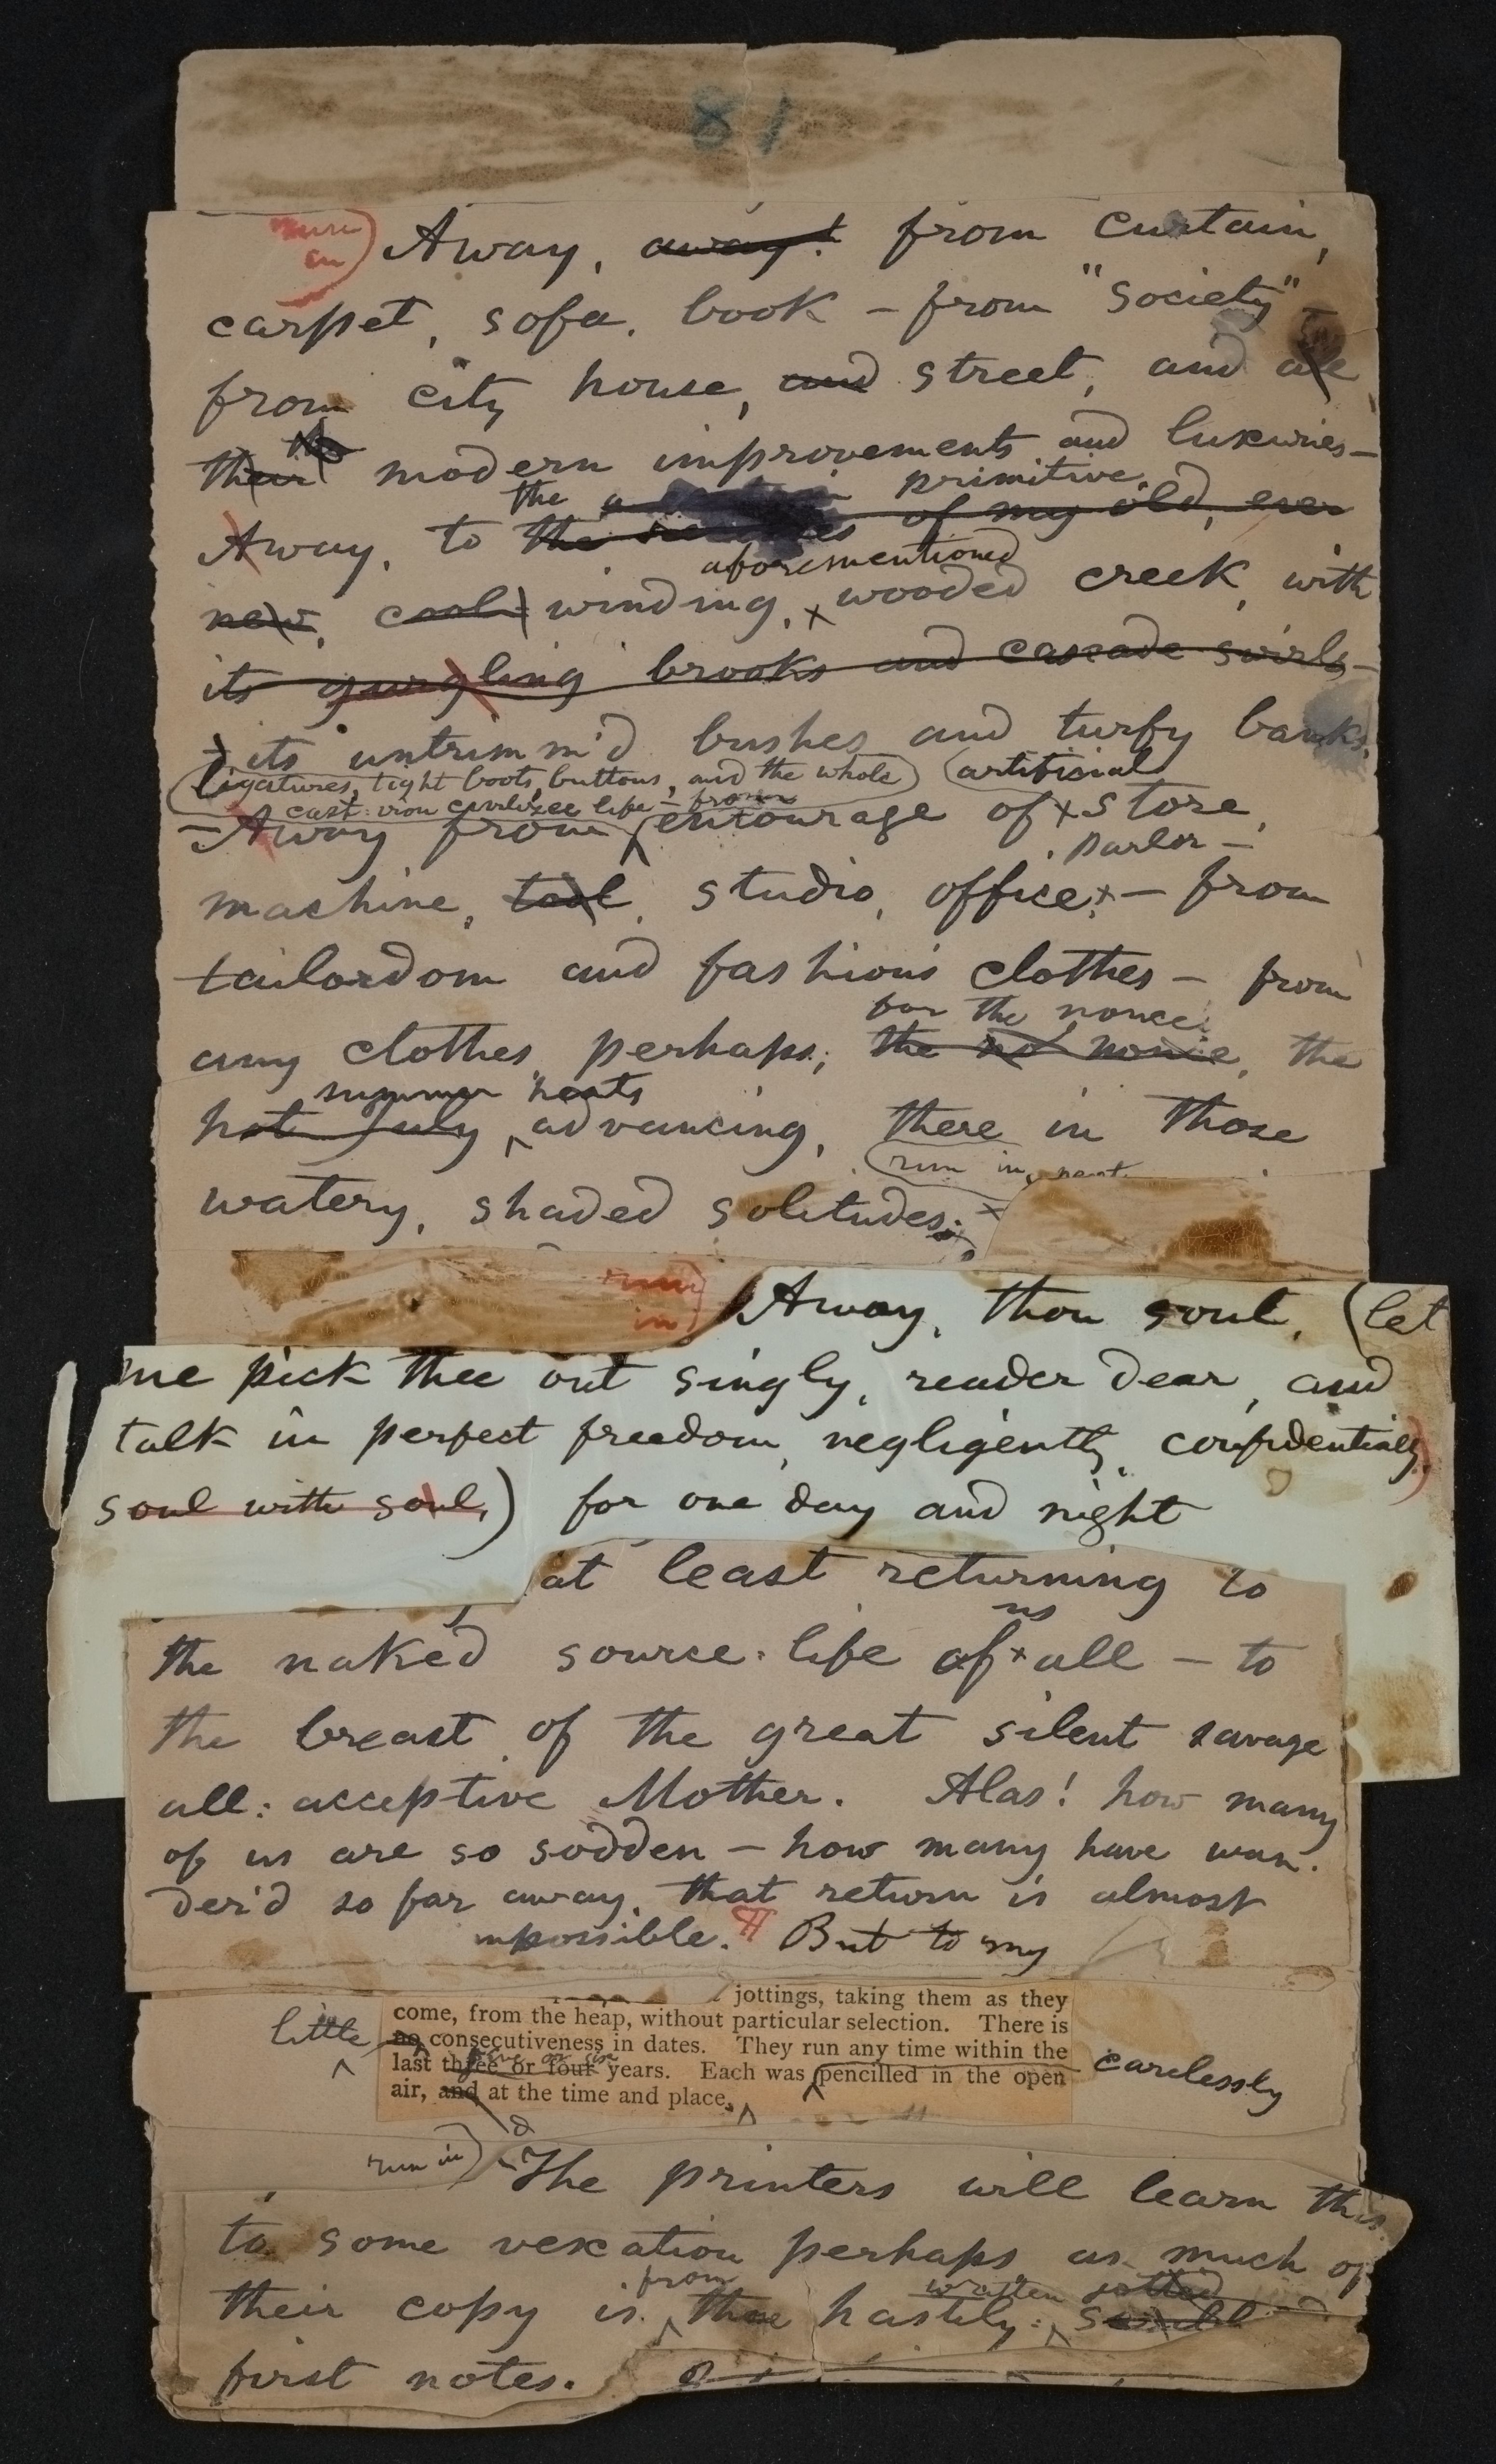 81
run
in) Away, away! from curtain,
carpet, sofa, book – from "society" –
from city house, and street, and all
their the modern improvements and luxuries –
the primitive
Away, to the of my old, ever
aforementioned
new, cool winding, wooded creek, with
its gurgling brooks and cascade swirls –
its untrimm'd bushes and turfy banks.
ligatures, tight boots, buttons, and the whole (artificial
cast-iron civilizee life – from
– Away from entourage of store,
parlor –
machine, tool, studio, office, – from
tailordom and fashion's clothes – from
for the nonce,
any clothes, perhaps, the no nonce, the
summer heats
hot July advancing, there in those
(run in, next
watery, shaded solitudes.
run
in) Away, thou soul, (let
me pick thee out singly, reader dear, and
talk in perfect freedom, negligently, confidentially,
soul with soul,) for one day and night
at least returning to
us
the naked source-life of all – to
the breast of the great silent savage
all-acceptive Mother. Alas! how many
of us are so sodden – how many have wan-
der'd so far away, that return is almost
impossible. ¶ But to my
jottings, taking them as they
come, from the heap, without particular selection. There is
little no consecutiveness in dates. They run any time within the
five or six
last three or four years. Each was pencilled in the open carelessly
air, and at the time and place.
run in) The printers will learn this
to some vexation perhaps, as much of
from written jotted
their copy is those hastily-
first notes.